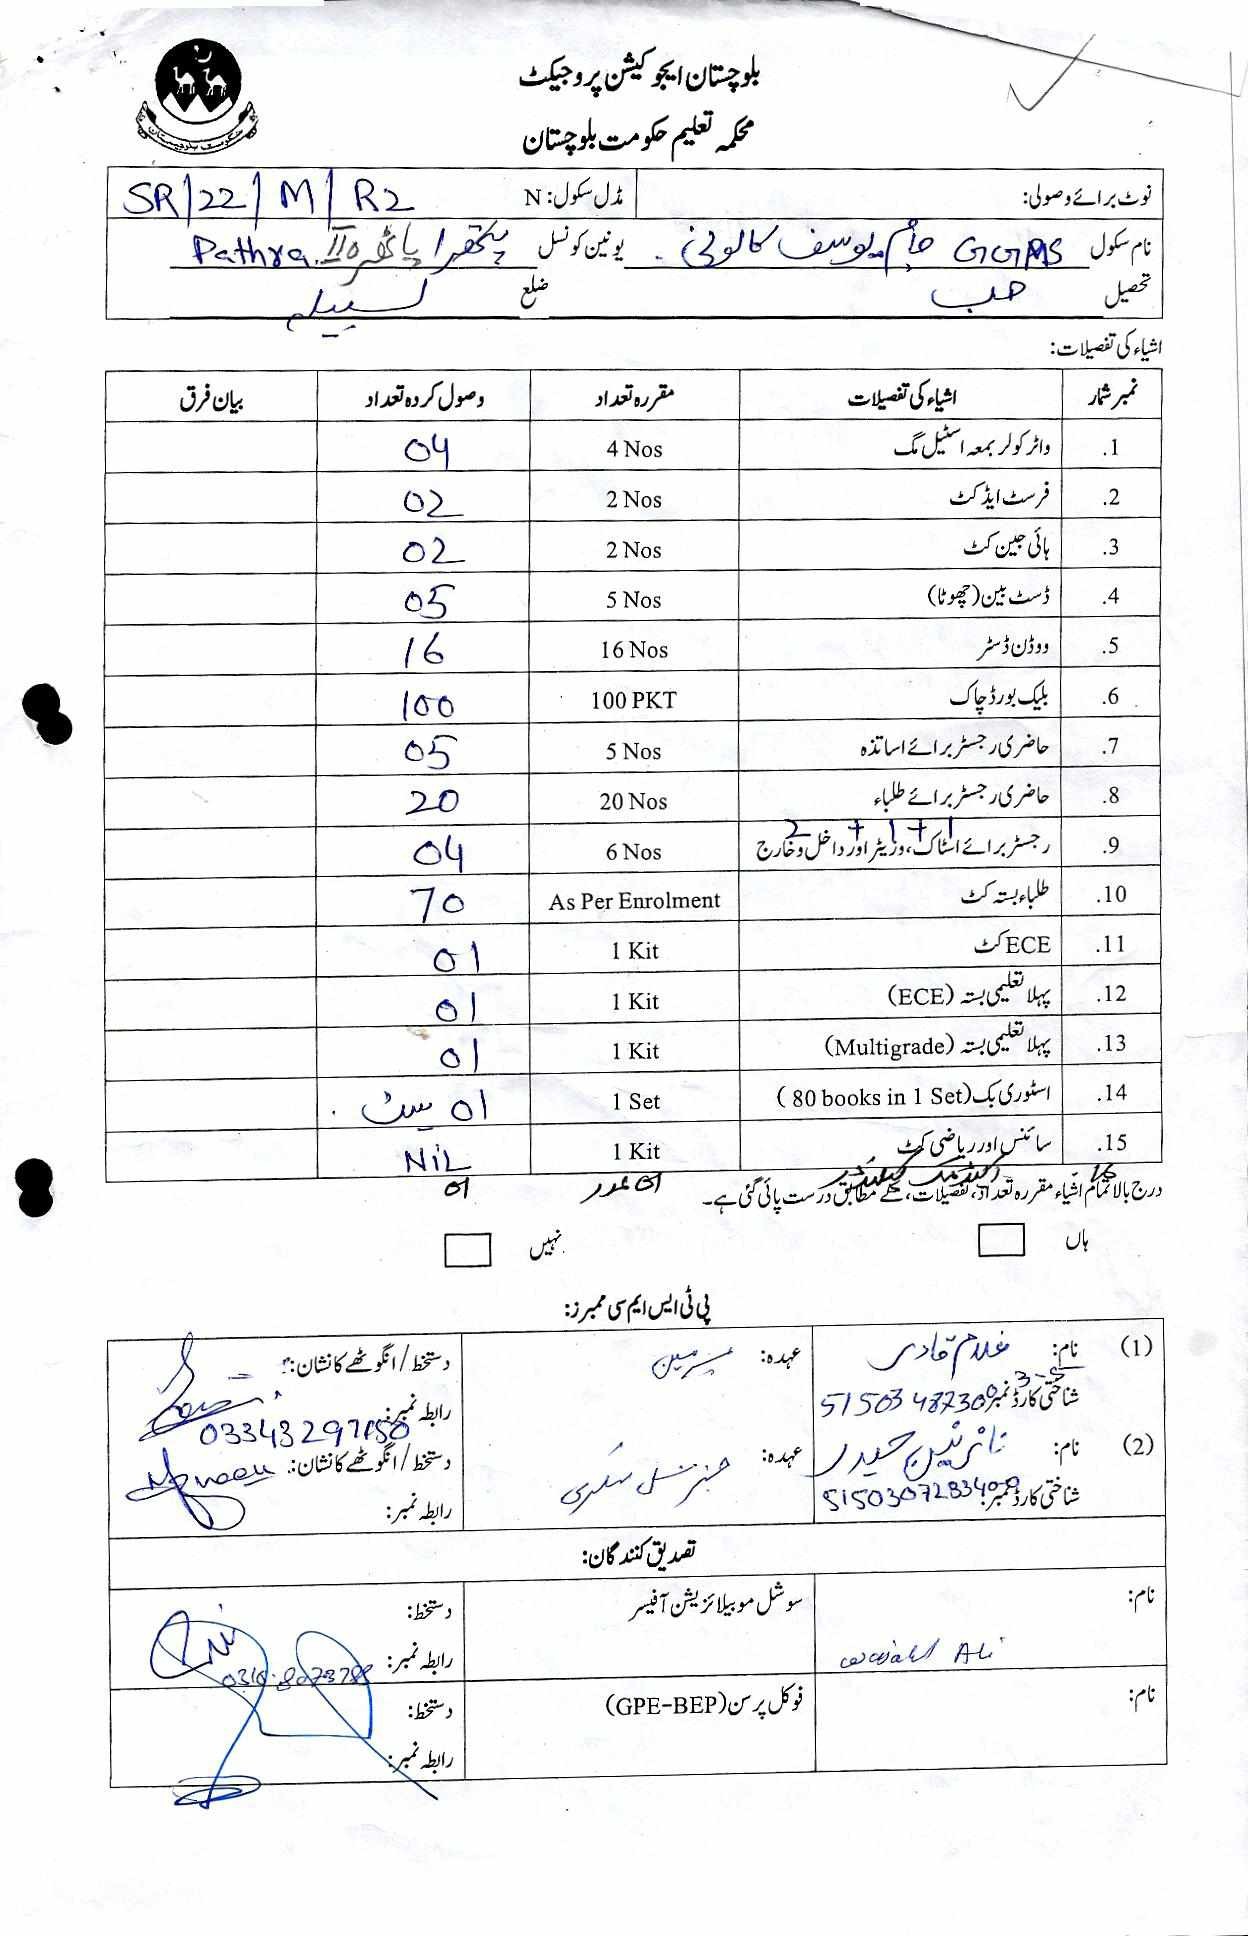 بلوچستان ایجوکیشن پروجیکٹ
محکمہ تعلیم حکومت بلوچستان
نوٹ برائے وصولی: مڈل سکول: N SR/22/M/R2
نام سکول GGMS جام یوسف کالونی یونین کونسل پتھرا Pathra
تحصیل حب ضلع لسبیلہ
اشیاء کی تفصیلات:
نمبر شمار اشیاء کی تفصیلات مقررہ تعداد وصول کردہ تعداد بیان فرق
1. واٹر کولر بمعہ اسٹیل مگ 4 Nos 04
2. فرسٹ ایڈ کٹ 2 Nos 02
3. ہائی جین کٹ 2 Nos 02
4. ڈسٹ بین (چھوٹا) 5 Nos 05
5. ووڈن ڈسٹر 16 Nos 16
6. بلیک بورڈ چاک 100 PKT 100
7. حاضری رجسٹر برائے اساتذہ 5 Nos 05
8. حاضری رجسٹر برائے طلباء 20 Nos 20
2 + 1 + 1
9. رجسٹر برائے اسٹاک، وزیٹر اور داخل و خارج 6 Nos 04
10. طلباء بستہ کٹ As Per Enrolment 70
11. ECE کٹ 1 Kit 01
12. پہلا تعلیمی بستہ (ECE) 1 Kit 01
13. پہلا تعلیمی بستہ (Multigrade) 1 Kit 01
14. اسٹوری بک (80 books in 1 Set) 1 Set 01 سیٹ
15. سائنس اور ریاضی کٹ 1 Kit NiL
16 01 عدد 01
درج بالا تمام اشیاء مقررہ تعداد، تفصیلات، کے مطابق درست پائی گئی ہے۔
ہاں نہیں
پی ٹی ایس ایم سی ممبرز:
(1) نام: غلام قادر عہدہ: چیرمین دستخط / انگوٹھے کا نشان:
شناختی کارڈ نمبر: رابطہ نمبر:
(2) نام: حیدر عہدہ: جنرل سکٹری دستخط / انگوٹھے کا نشان:
شناختی کارڈ نمبر: رابطہ نمبر:
تصدیق کنندگان:
نام: Ali سوشل موبیلائزیشن آفیسر دستخط:
رابطہ نمبر:
نام: فوکل پرسن (GPE-BEP) دستخط:
رابطہ نمبر: